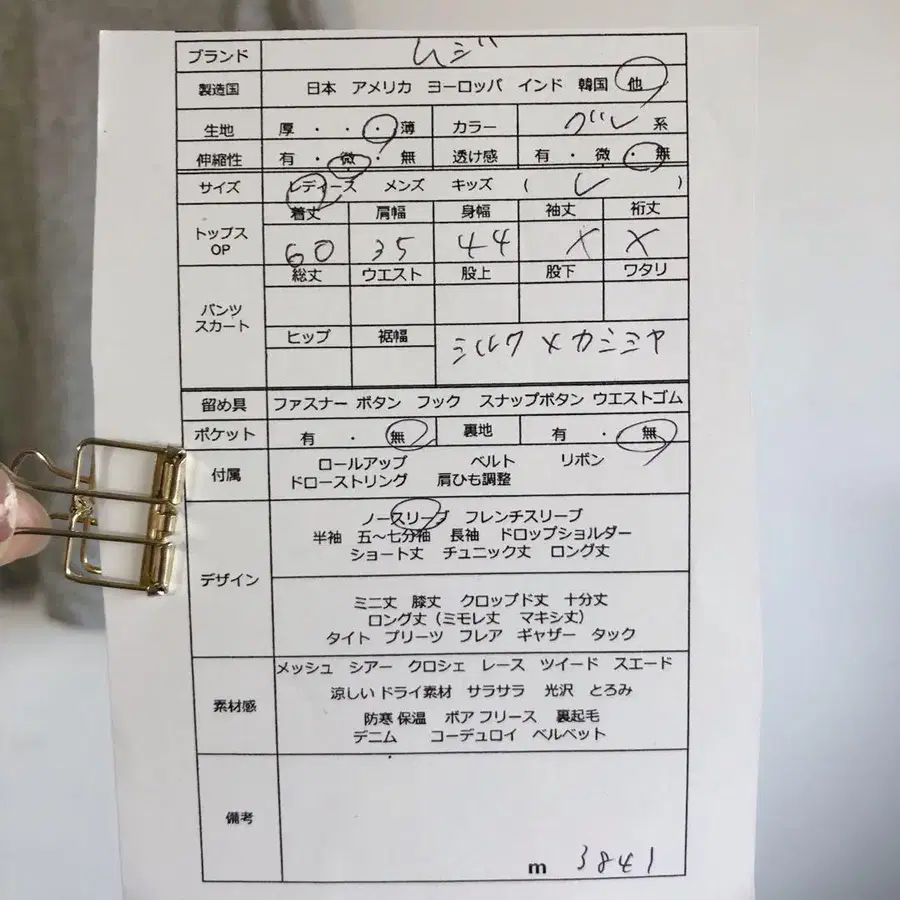 ブランド ムジ
製造国 日本 アメリカ ヨーロッパ インド 韓国 他
生地 厚・・・薄 カラー グレー 系
伸縮性 有・微・無 透け感 有・微・無
サイズ レディース メンズ キッズ ( L )
トップス OP 着丈 肩幅 身幅 袖丈 裄丈
60 35 44 X X
パンツ スカート 総丈 ウエスト 股上 股下 ワタリ
ヒップ 裾幅
留め具 ファスナー ボタン フック スナップボタン ウエストゴム
ポケット 有・無 裏地 有・無
付属 ロールアップ ベルト リボン
ドローストリング 肩ひも調整
デザイン ノースリーブ フレンチスリーブ
半袖 五～七分袖 長袖 ドロップショルダー
ショート丈 チュニック丈 ロング丈
ミニ丈 膝丈 クロップド丈 十分丈
ロング丈（ミモレ丈 マキシ丈）
タイト プリーツ フレア ギャザー タック
素材感 メッシュ シアー クロシェ レース ツイード スエード
涼しい ドライ素材 サラサラ 光沢 とろみ
防寒 保温 ボア フリース 裏起毛
デニム コーデュロイ ベルベット
備考
m 3841